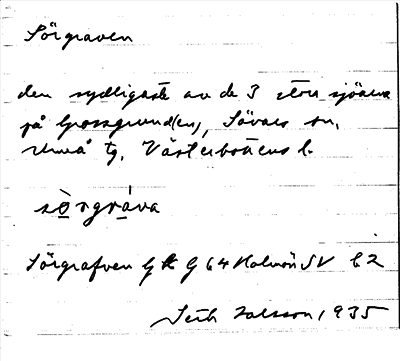 Sörgraven
den sydligaste av de 3 stora sjöarna
på Grossgrund(en), Sävars sn,
Umeå tg, Västerbottens l.
sörgráva
Sörgrafven G k G 64 Holmön SV C2
Seth Jalsson, 1935